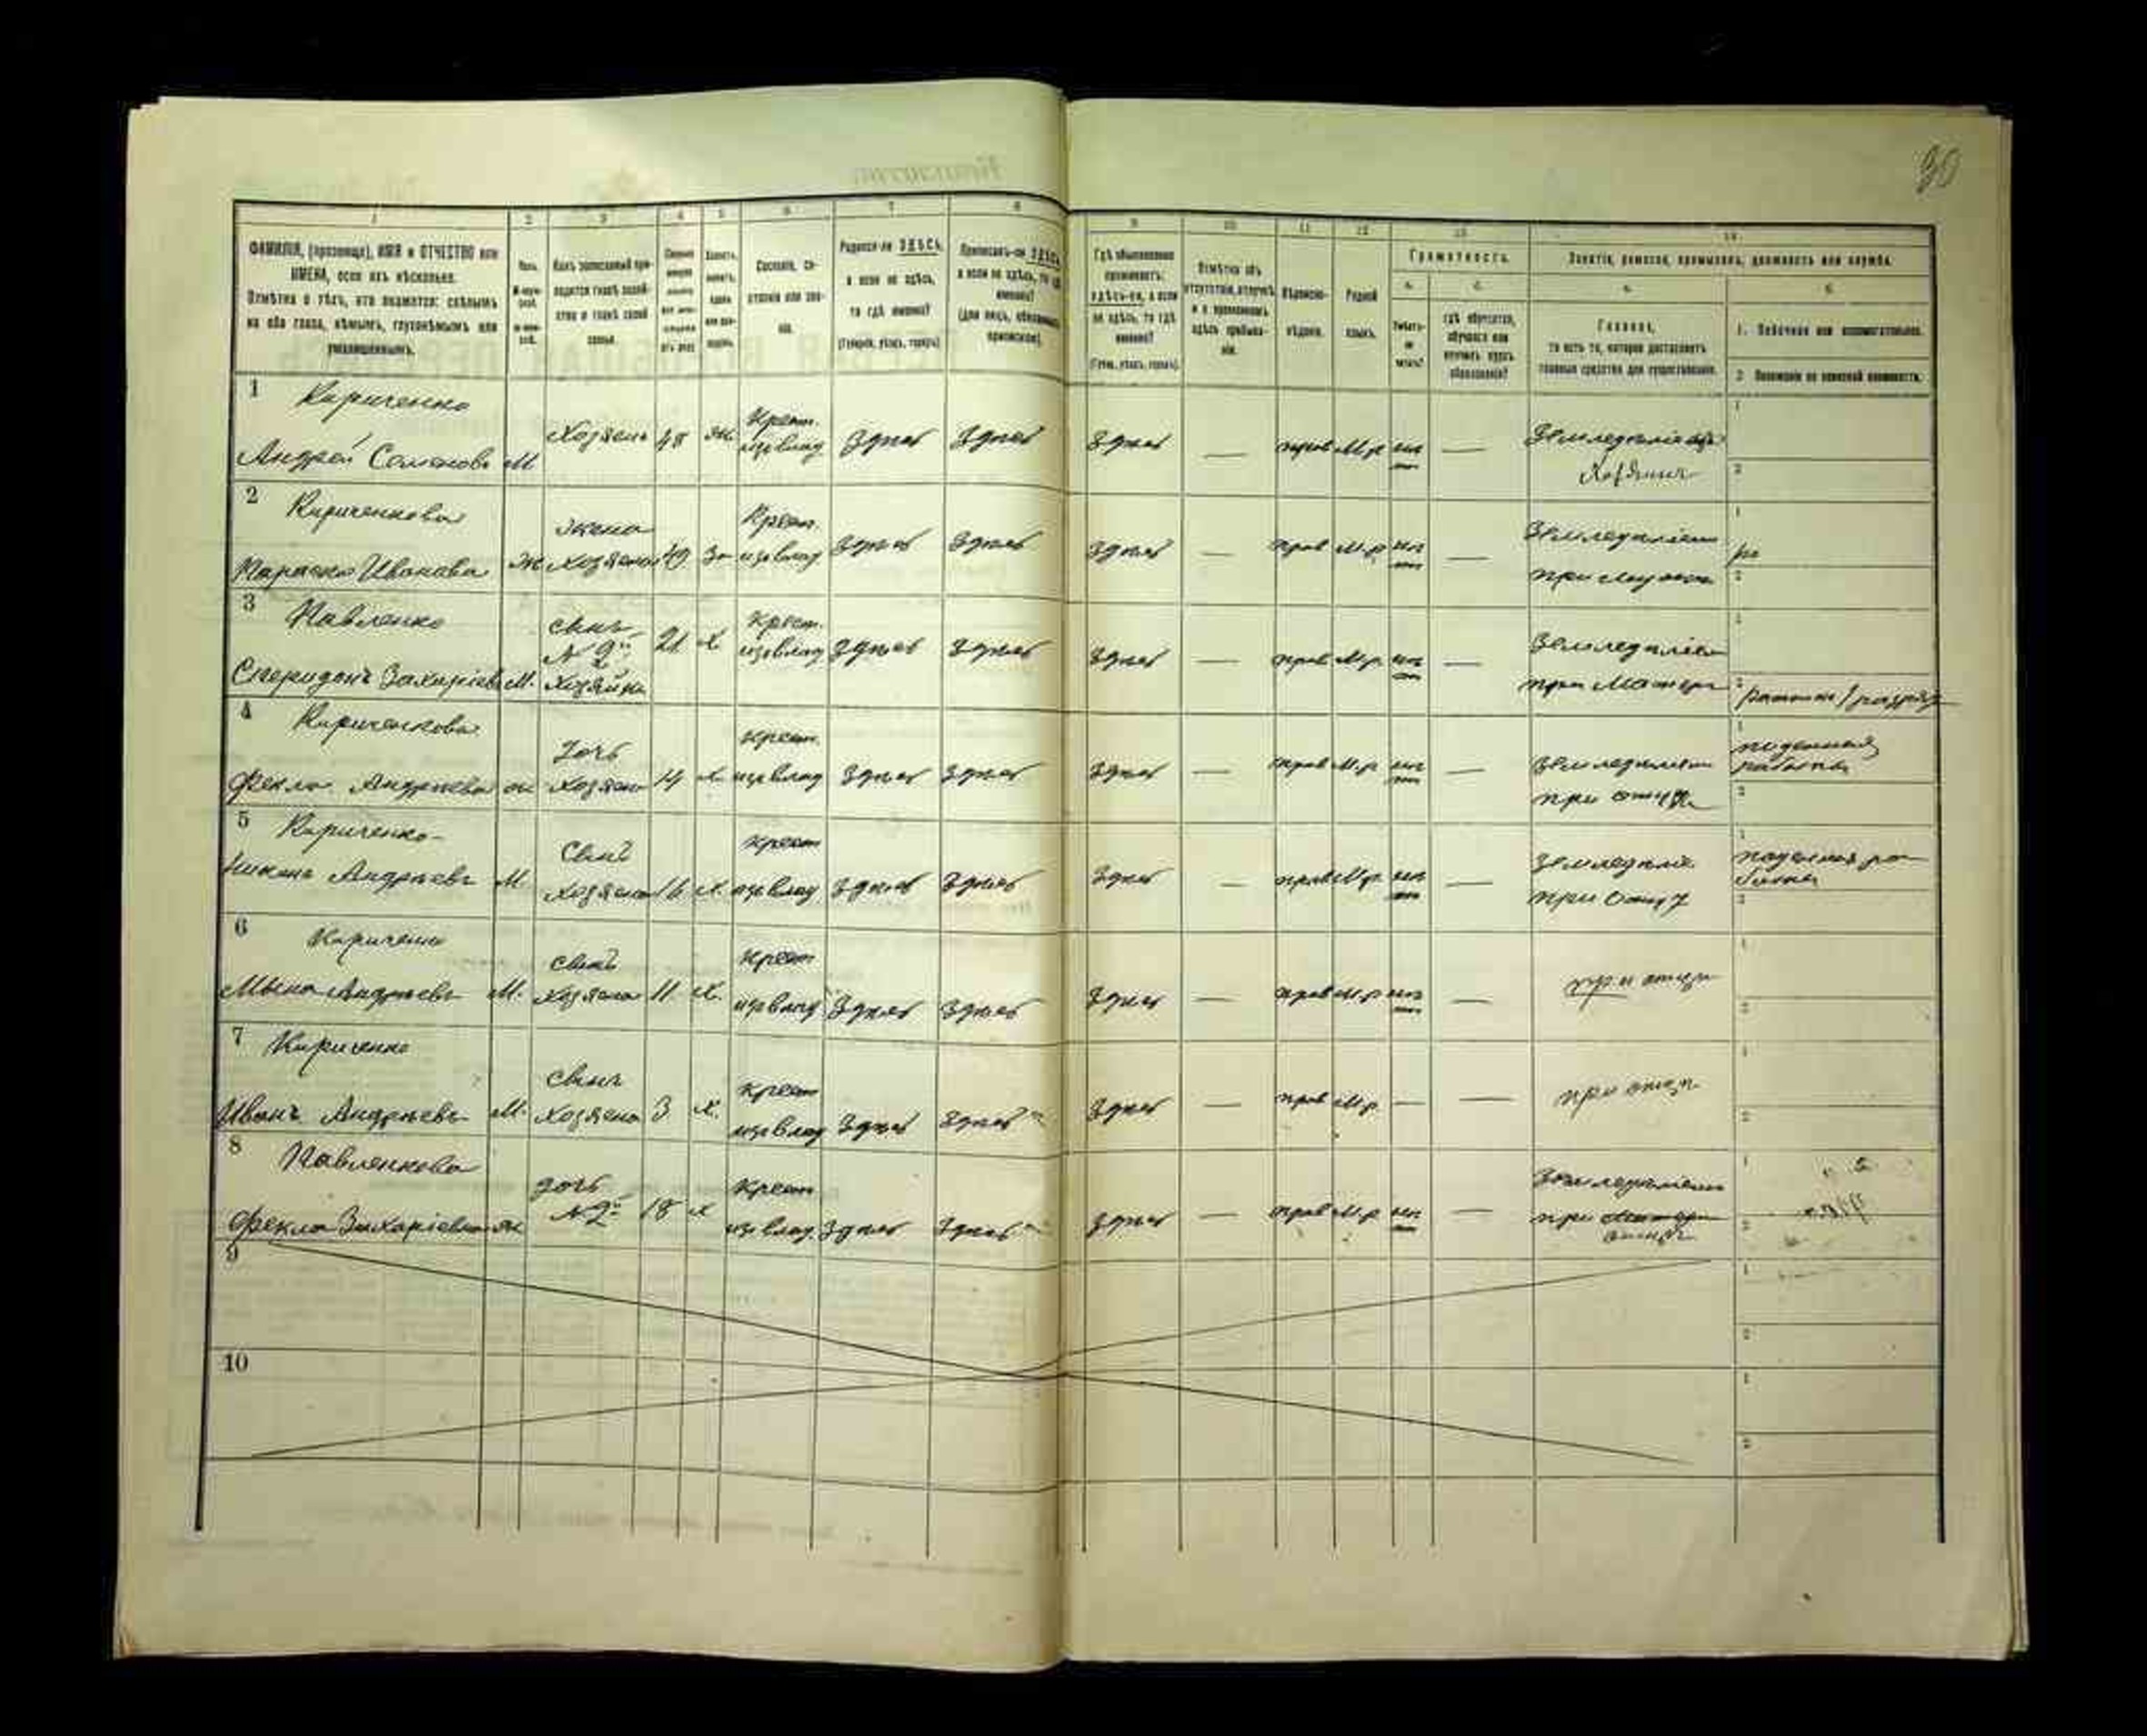 30
1 2 3 4 5 6 7 8 9 10 11 12 13 14
ФАМИЛІЯ, (прозвище), ИМЯ и ОТЧЕСТВО или
ИМЕНА, если ихъ нѣсколько.
Отмѣтка о тѣхъ, кто окажется: слѣпымъ
на оба глаза, нѣмымъ, глухонѣмымъ или
умалишеннымъ.
Полъ.
Какъ записанный при-
ходится главѣ хозяй-
ства и главѣ своей
семьи.
Сословіе, со-
стояніе или зва-
ніе.
Родился-ли ЗДѢСЬ,
а если не здѣсь,
то гдѣ именно?
(Губернія, уѣздъ, городъ)
Приписанъ-ли ЗДѢСЬ,
а если не здѣсь, то гдѣ
именно?
Гдѣ обыкновенно
проживаетъ:
здѣсь-ли, а если
не здѣсь, то гдѣ
именно?
(Губ., уѣздъ, городъ)
Отмѣтка объ
отсутствіи, отлучкѣ
и о временномъ
здѣсь пребыва-
ніи.
Вѣроиспо-
вѣданіе.
Родной
языкъ.
Грамотность.
а.
Умѣетъ-
ли
читать?
б.
гдѣ обучается,
обучался или
кончилъ курсъ
образованія?
Занятіе, ремесло, промыселъ, должность или служба.
а.
Главное,
то есть то, которое доставляетъ
главныя средства для существованія.
б.
1. Побочное или вспомогательное.
2. Положеніе по воинской повинности.
1 Кириченко
Андрей Семеновъ М Хозяинъ 48 Ж. Крест. изъ влад Здѣсь Здѣсь Здѣсь — прав М.р нѣтъ — Земледѣліе
Хозяинъ
2 Кириченкова
Параска Иванова Ж жена Хозяина 49 За Крест. изъ влад Здѣсь Здѣсь Здѣсь — прав М.р нѣтъ — Земледѣліе
при мужѣ
3 Павленко
Спиридонъ Захаріевъ М. сынъ № 2й Хозяйка 21 Х Крест. изъ влад Здѣсь Здѣсь Здѣсь — прав М.р. нѣтъ — Земледѣліе
при Матери
ратникъ 1 разряд
4 Кириченкова
Фекла Андреева ж дочь Хозяина 14 Х крест. изъ влад Здѣсь Здѣсь Здѣсь — прав М.р нѣтъ — Земледѣліе
при отцѣ
поденная
работа
5 Кириченко
Никонъ Андреевъ М. Сынъ Хозяина 16 Х. крест изъ влад Здѣсь Здѣсь Здѣсь — прав М.р. нѣтъ — Земледѣліе
при отцѣ
поденная ра-
бота
6 Кириченко
Андреевъ М. сынъ Хозяина 11. Х. крест изъ влад Здѣсь Здѣсь Здѣсь — прав М.р нѣтъ — при отцѣ
7 Кириченко
Иванъ Андреевъ М. сынъ Хозяина 3 Х. крест изъ влад Здѣсь Здѣсь Здѣсь — прав М.р. — — при отцѣ
8 Павленкова
Фекла Захаріевна ж дочь № 2й 18 Х крест изъ влад. Здѣсь Здѣсь Здѣсь — прав М.р нѣтъ — Земледѣліе
при
9
10